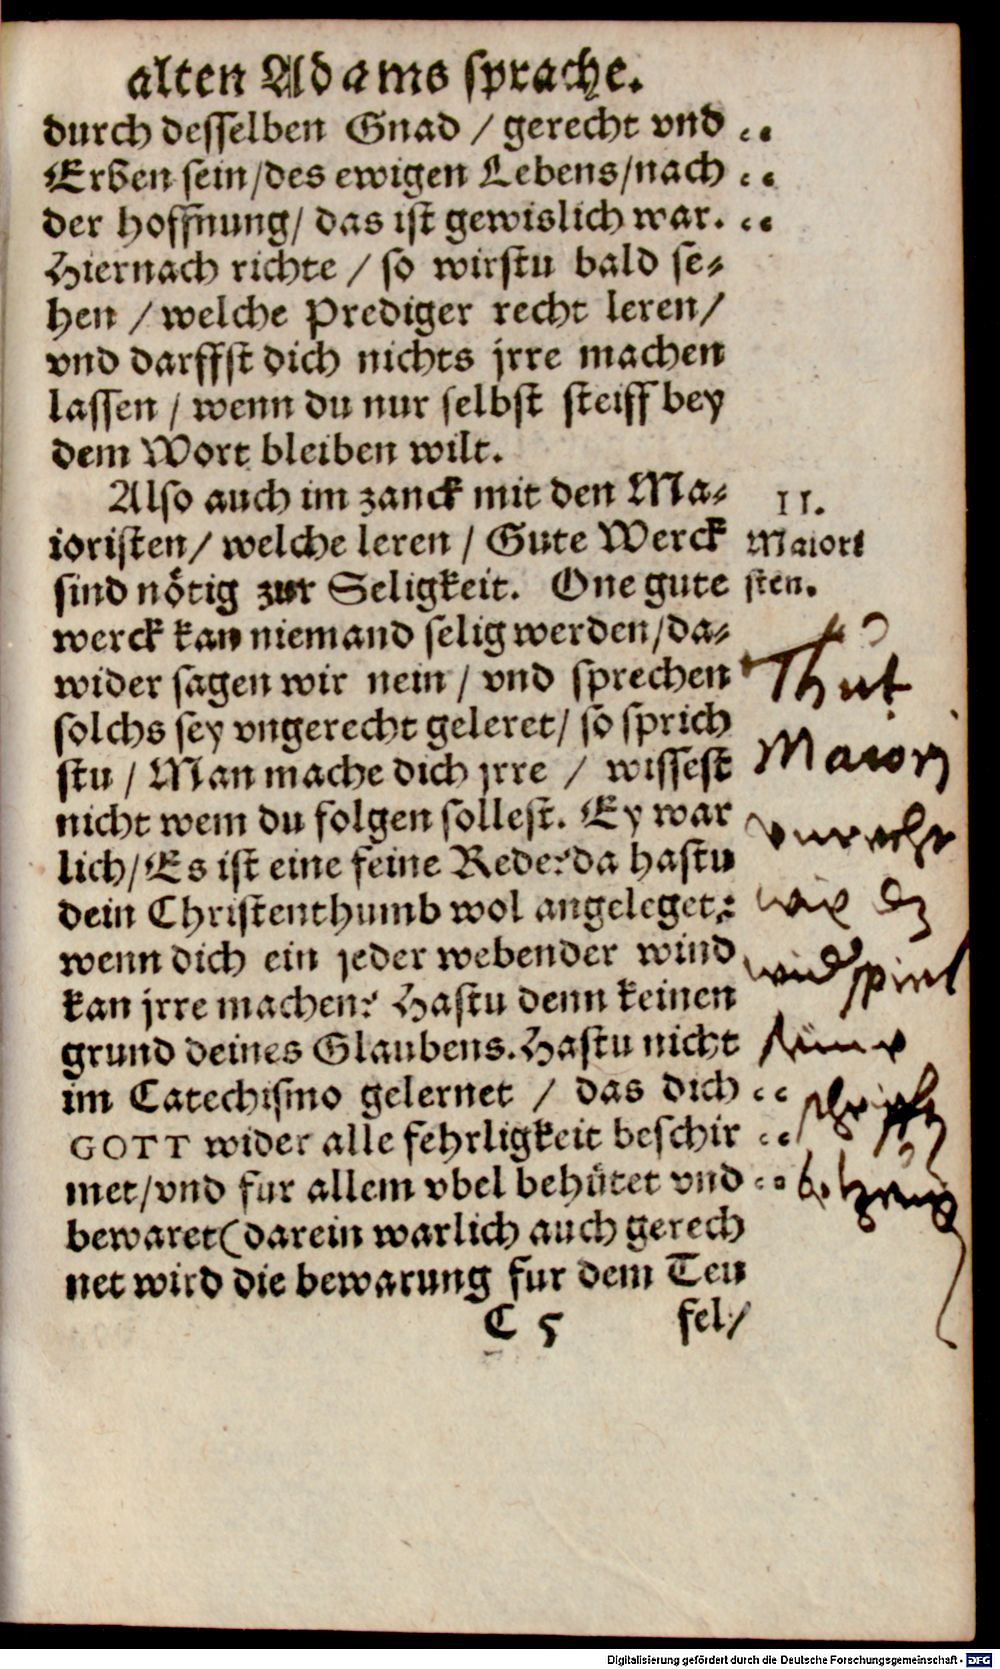 alten Adams sprache.
durch desselben Gnad / gerecht vnd
Erben sein/des ewigen Lebens/nach
der hoffnung/ das ist gewislich war.
Hiernach richte / so wirstu bald se⸗
hen / welche Prediger recht leren/
vnd darffst dich nichts jrre machen
lassen / wenn du nur selbst steiff bey
dem Wort bleiben wilt.
Also auch im zanck mit den Ma⸗
ioristen/ welche leren / Gute Werck
sind nötig zur Seligkeit. One gute
werck kan niemand selig werden/da⸗
wider sagen wir nein / vnd sprechen
solchs sey vngerecht geleret/ so sprich
stu / Man mache dich jrre / wissest
nicht wem du folgen sollest. Ey war
lich/Es ist eine feine Rede?da hastu
dein Christenthumb wol angeleget?
wenn dich ein jeder webender wind
kan jrre machen? Hastu denn keinen
grund deines Glaubens. Hastu nicht
im Catechismo gelernet / das dich
GOTT wider alle fehrligkeit beschir
met/vnd fur allem vbel behütet vnd
bewaret(darein warlich auch gerech
net wird die bewarung fur dem Teu
C 5 fel/
11.
Maiori
sten.
Thut
Maiori
vnrecht
wie
Digitalisierung gefördert durch die Deutsche Forschungsgemeinschaft - DFG